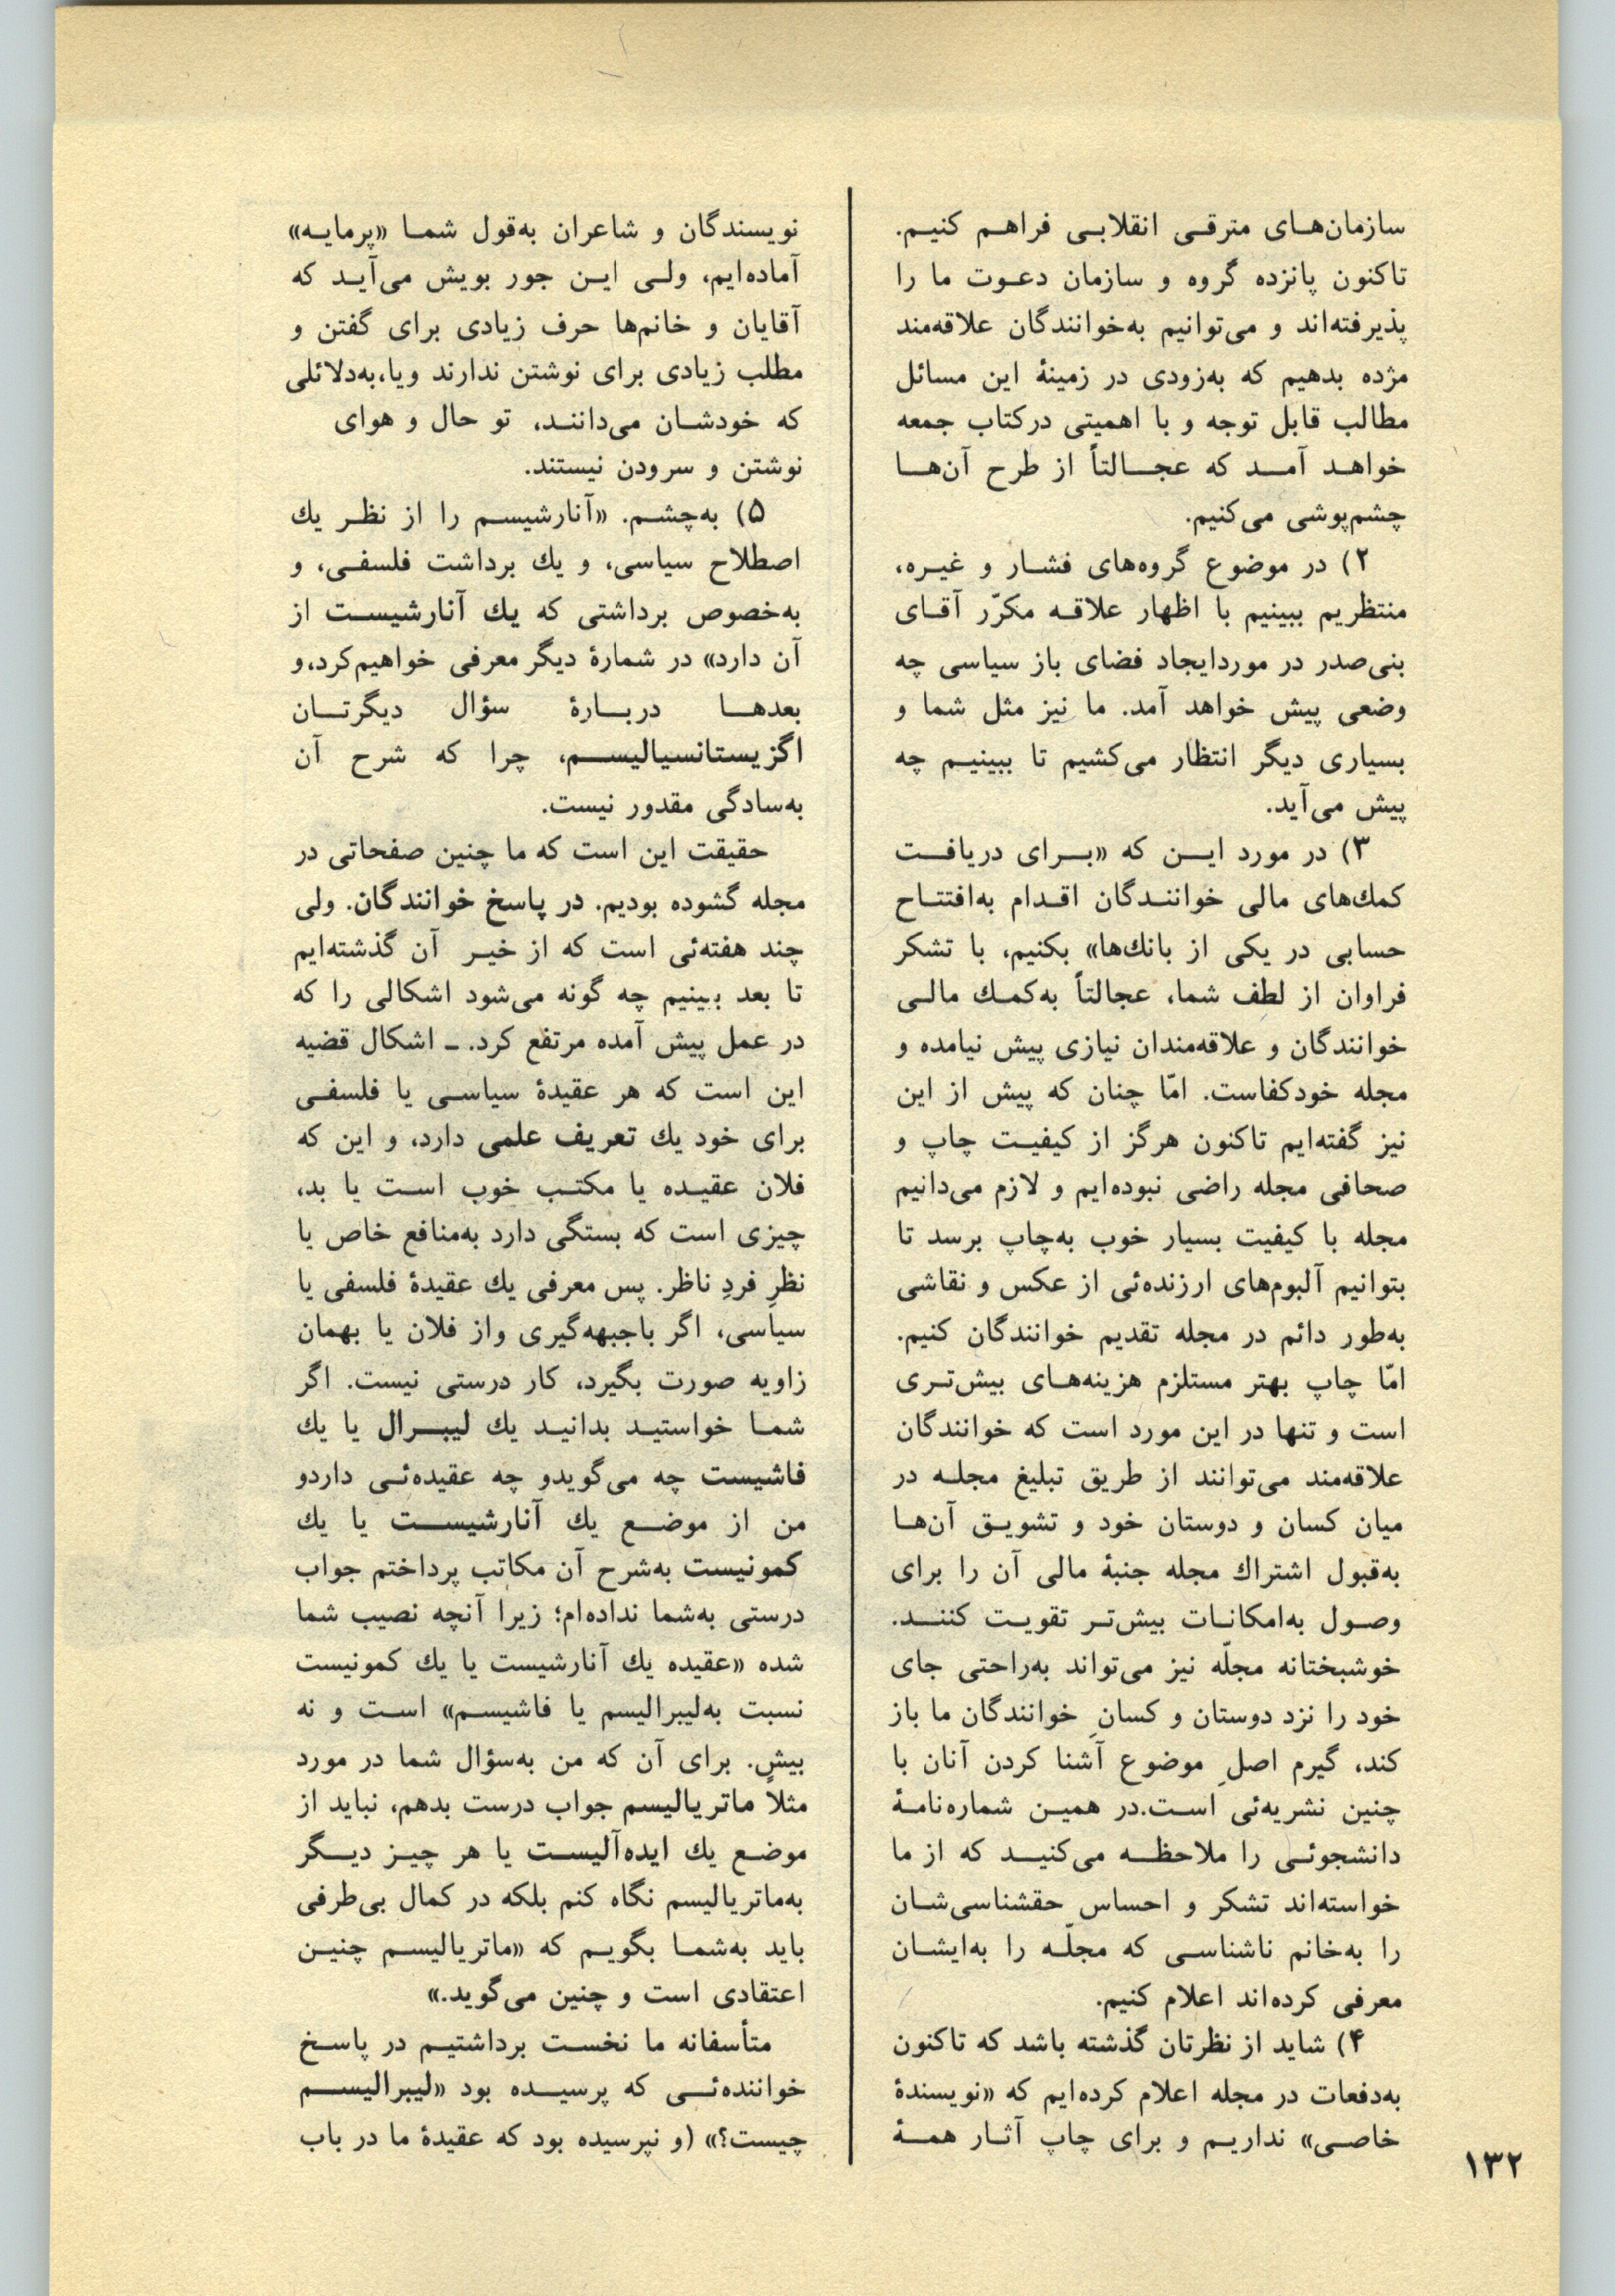 سازمان‌های مترقی انقلابی فراهم کنیم.
تاکنون پانزده گروه و سازمان دعوت ما را
پذیرفته‌اند و می‌توانیم به‌خوانندگان علاقه‌مند
مژده بدهیم که به‌زودی در زمینهٔ این مسائل
مطالب قابل توجه و با اهمیتی درکتاب جمعه
خواهد آمد که عجالتاً از طرح آن‌ها
چشم‌پوشی می‌کنیم.
۲) در موضوع گروه‌های فشار و غیره،
منتظریم ببینیم با اظهار علاقه مکرّر آقای
بنی‌صدر در موردایجاد فضای باز سیاسی چه
وضعی پیش خواهد آمد. ما نیز مثل شما و
بسیاری دیگر انتظار می‌کشیم تا ببینیم چه
پیش می‌آید.
۳) در مورد این که «برای دریافت
کمك‌های مالی خوانندگان اقدام به‌افتتاح
حسابی در یکی از بانك‌ها» بکنیم، با تشکر
فراوان از لطف شما، عجالتاً به‌کمك مالی
خوانندگان و علاقه‌مندان نیازی پیش نیامده و
مجله خودکفاست. امّا چنان که پیش از این
نیز گفته‌ایم تاکنون هرگز از کیفیت چاپ و
صحافی مجله راضی نبوده‌ایم و لازم می‌دانیم
مجله با کیفیت بسیار خوب به‌چاپ برسد تا
بتوانیم آلبوم‌های ارزنده‌ئی از عکس و نقاشی
به‌طور دائم در مجله تقدیم خوانندگان کنیم.
امّا چاپ بهتر مستلزم هزینه‌های بیش‌تری
است و تنها در این مورد است که خوانندگان
علاقه‌مند می‌توانند از طریق تبلیغ مجله در
میان کسان و دوستان خود و تشویق آن‌ها
به‌قبول اشتراك مجله جنبهٔ مالی آن را برای
وصول به‌امکانات بیش‌تر تقویت کنند.
خوشبختانه مجلّه نیز می‌تواند به‌راحتی جای
خود را نزد دوستان و کسانِ خوانندگان ما باز
کند، گیرم اصلِ موضوع آشنا کردن آنان با
چنین نشریه‌ئی است.در همین شماره‌نامهٔ
دانشجوئی را ملاحظه می‌کنید که از ما
خواسته‌اند تشکر و احساس حقشناسی‌شان
را به‌خانم ناشناسی که مجلّه را به‌ایشان
معرفی کرده‌اند اعلام کنیم.
۴) شاید از نظرتان گذشته باشد که تاکنون
به‌دفعات در مجله اعلام کرده‌ایم که «نویسندهٔ
خاصی» نداریم و برای چاپ آثار همهٔ
نویسندگان و شاعران به‌قول شما «پرمایه»
آماده‌ایم، ولی این جور بویش می‌آید که
آقایان و خانم‌ها حرف زیادی برای گفتن و
مطلب زیادی برای نوشتن ندارند ویا،به‌دلائلی
که خودشان می‌دانند، تو حال و هوای
نوشتن و سرودن نیستند.
۵) به‌چشم. «آنارشیسم را از نظر یك
اصطلاح سیاسی، و یك برداشت فلسفی، و
به‌خصوص برداشتی که یك آنارشیست از
آن دارد» در شمارهٔ دیگر معرفی خواهیم‌کرد،و
بعدها دربارهٔ سؤال دیگرتان
اگزیستانسیالیسم، چرا که شرح آن
به‌سادگی مقدور نیست.
حقیقت این است که ما چنین صفحاتی در
مجله گشوده بودیم. در پاسخ خوانندگان. ولی
چند هفته‌ئی است که از خیر آن گذشته‌ایم
تا بعد ببینیم چه گونه می‌شود اشکالی را که
در عمل پیش آمده مرتفع کرد. ـ اشکال قضیه
این است که هر عقیدهٔ سیاسی یا فلسفی
برای خود یك تعریف علمی دارد، و این که
فلان عقیده یا مکتب خوب است یا بد،
چیزی است که بستگی دارد به‌منافع خاص یا
نظرِ فردِ ناظر. پس معرفی یك عقیدهٔ فلسفی یا
سیاسی، اگر باجبهه‌گیری واز فلان یا بهمان
زاویه صورت بگیرد، کار درستی نیست. اگر
شما خواستید بدانید یك لیبرال یا یك
فاشیست چه می‌گویدو چه عقیده‌ئی داردو
من از موضع یك آنارشیست یا یك
کمونیست به‌شرح آن مکاتب پرداختم جواب
درستی به‌شما نداده‌ام؛ زیرا آنچه نصیب شما
شده «عقیده یك آنارشیست یا یك کمونیست
نسبت به‌لیبرالیسم یا فاشیسم» است و نه
بیش. برای آن که من به‌سؤال شما در مورد
مثلاً ماتریالیسم جواب درست بدهم، نباید از
موضع یك ایده‌آلیست یا هر چیز دیگر
به‌ماتریالیسم نگاه کنم بلکه در کمال بی‌طرفی
باید به‌شما بگویم که «ماتریالیسم چنین
اعتقادی است و چنین می‌گوید.»
متأسفانه ما نخست برداشتیم در پاسخ
خواننده‌ئی که پرسیده بود «لیبرالیسم
چیست؟» (و نپرسیده بود که عقیدهٔ ما در باب
۱۳۲